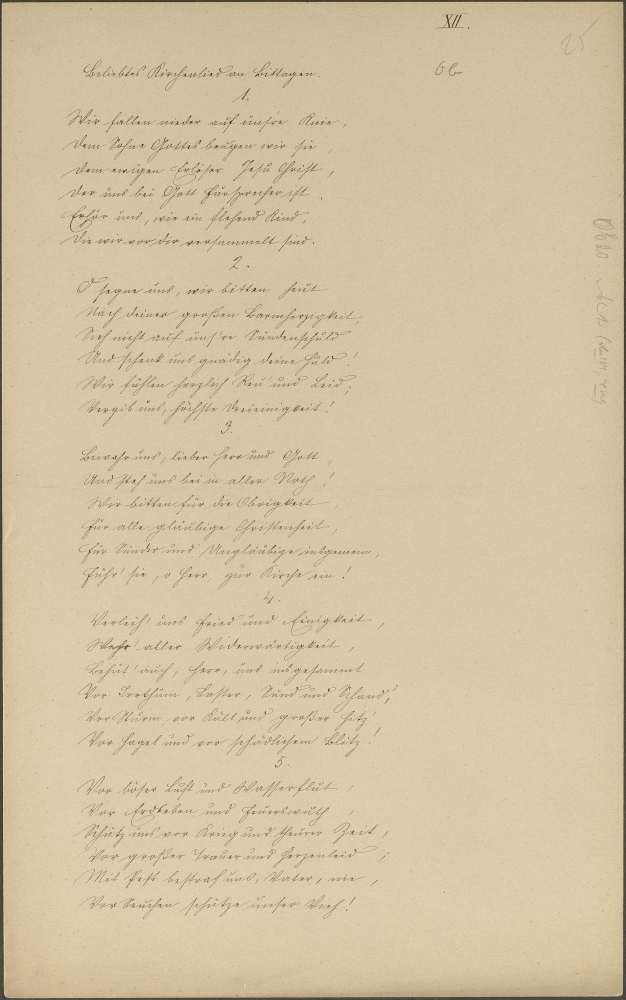 XII.
25
Beliebtes Kirchenlied an Bittagen.
1.
Wir fallen nieder auf uns're Knie,
Dem Sohne Gottes beugen wir sie,
Dem ewigen Erlöser Jesu Christ,
Der uns bei Gott Fürsprecher ist.
Erhör uns, wie ein flehend Kind,
Die wir vor dir versammelt sind.
2.
O segne uns, wir bitten heut
Nach deiner großen Barmherzigkeit,
Sieh nicht auf uns're Sündenschuld
Und schenk uns gnädig deine Huld!
Wir fühlen herzlich Reu und Leid,
Vergib uns, höchste Dreieinigkeit!
3.
Bewahr uns, lieber Herr und Gott
Und steh uns bei in aller Noth!
Wir bitten für die Obrigkeit,
Für alle gläubige Christenheit,
Für Sünder und Ungläubige insgemein,
Führ' sie, o Herr, zur Kirche ein!
4.
Verleih' uns Fried und Einigkeit,
Wehr' aller Widerwärtigkeit,
Behüt' auch, Herr, uns insgesammt
Vor Irrthum, Laster, Sünd und Schand',
Vor Sturm, vor Kält und großer Hitz'
Vor Hagel und vor schädlichem Blitz!
5.
Vor böser Luft und Wasserflut,
Vor Erdbeben und Feuerswuth,
Schütz uns vor Krieg und theurer Zeit,
Vor großer Trauer und Herzenleid;
Mit Pest bestraf uns, Vater, nie,
Vor Seuchen schütze unser Vieh!